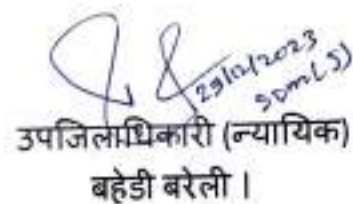 29/12/2023
SDM(J)
उपजिलाधिकारी (न्यायिक)
बहेडी बरेली ।